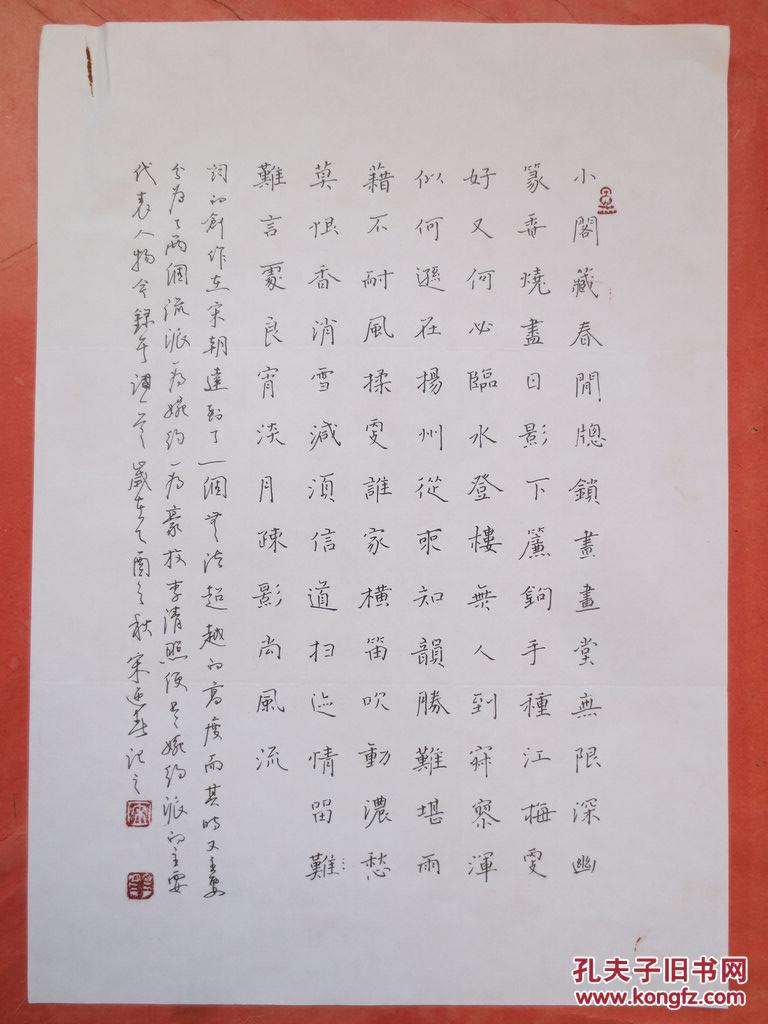 小閣藏春閒牕鎖晝畫堂無限深幽
篆香燒盡日影下簾鉤手種江梅㪅
好又何必臨水登樓無人到寂寥渾
似何遜在揚州從來知韻勝難堪雨
藉不耐風揉㪅誰家橫笛吹動濃愁
莫恨香消雪減須信道掃迹情留難
難言處良宵淡月疎影尚風流
詞的創作在宋朝達到了一個無法超越的高度而其時又主要
分為了兩個流派一為婉約一為豪放李清照便是婉約派的主要
代表人物今錄其詞一首歲在乙酉之秋宋記之
孔夫子旧书网
www.kongfz.com